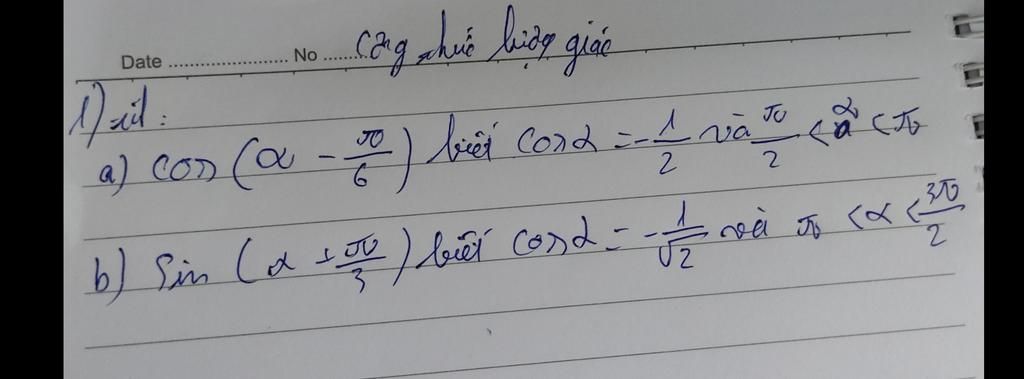 Date ........................ No ........ Công thức lượng giác
1) Tính:
a) cos(α - π/6) biết cosα = -1/2 và π/2 < α < π
b) Sin (α + π/3) biết cosα = -1/√2 và π < α < 3π/2